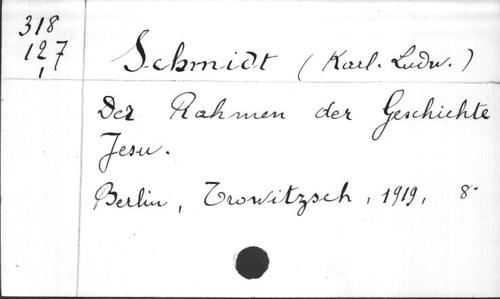 318
127
1
Schmidt (Karl. Ludw.)
Der Rahmen der Geschichte
Jesu.
Berlin, Trowitzsch, 1919, 8°